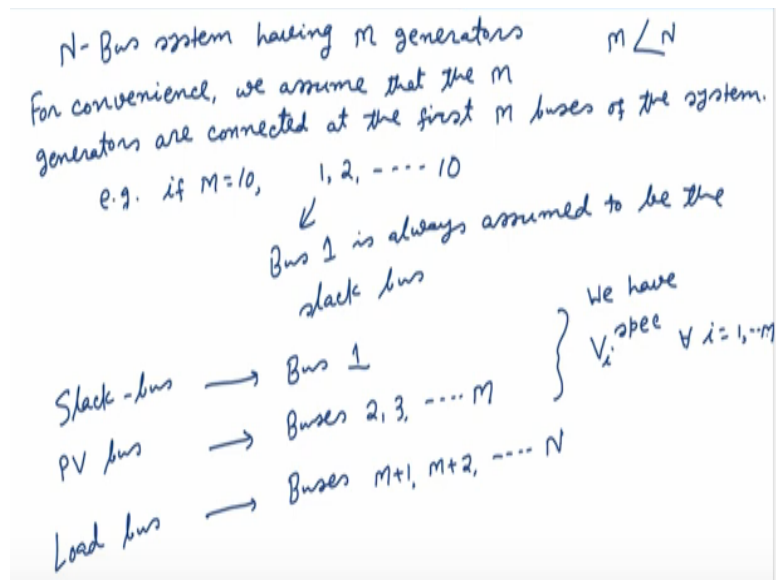 N-Bus system having m generators      m < N
For convenience, we assume that the m
generators are connected at the first m buses of the system.
e.g. if M=10,    1, 2, ---- 10
↙
Bus 1 is always assumed to be the
slack bus
Slack-bus → Bus 1
PV bus → Buses 2, 3, ---- M
} We have
Vᵢ^spec ∀ i = 1, --M
Load bus → Buses M+1, M+2, ---- N